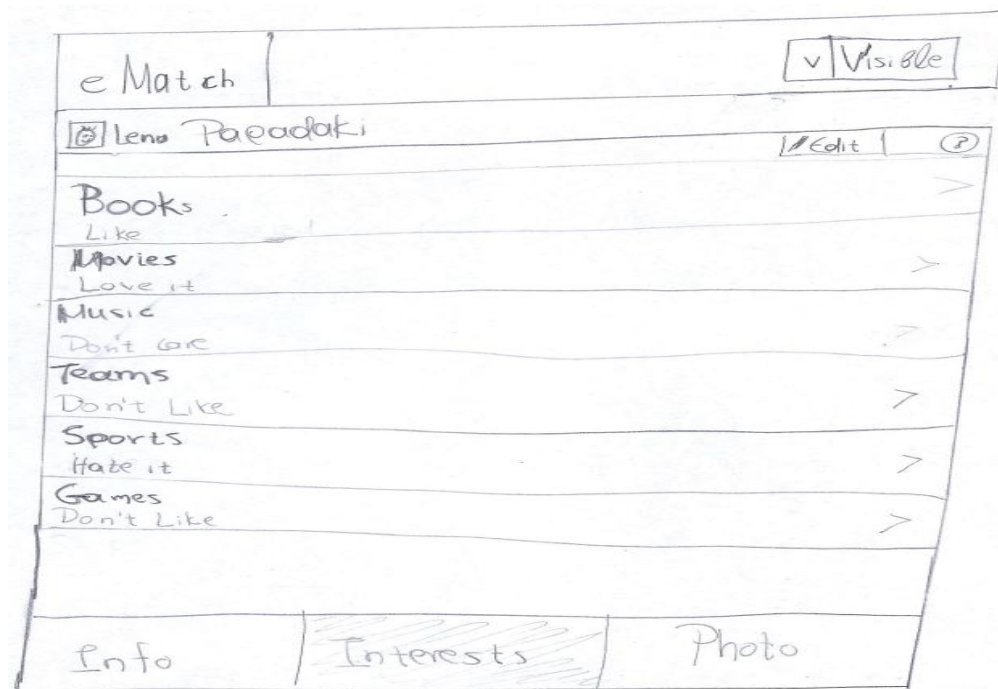 e Match
v Visible
Lena Papadaki
Edit ?
Books >
Like
Movies >
Love it
Music >
Don't care
Teams >
Don't Like
Sports >
Hate it
Games >
Don't Like
Info Interests Photo